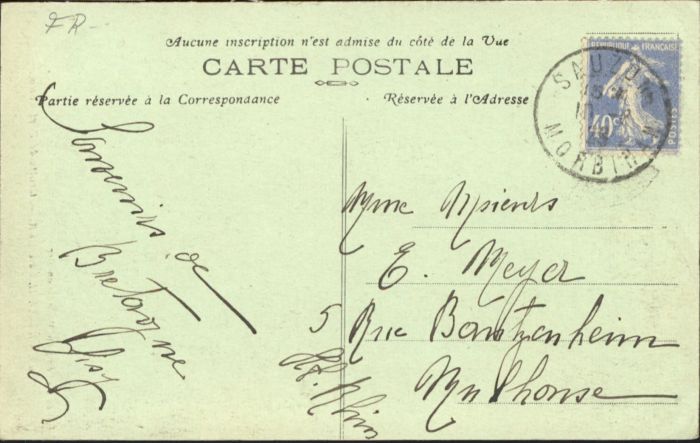 FR-
Aucune inscription n'est admise du côté de la Vue
CARTE POSTALE
Partie réservée à la Correspondance
Réservée à l'Adresse
REPUBLIQUE FRANÇAISE
40c
POSTES
SAUZON
MORBIHAN
Souvenirs de
Bretagne
Mme
E. Meyer
5 Rue Bantzenheim
Mulhouse
Ht. Rhin